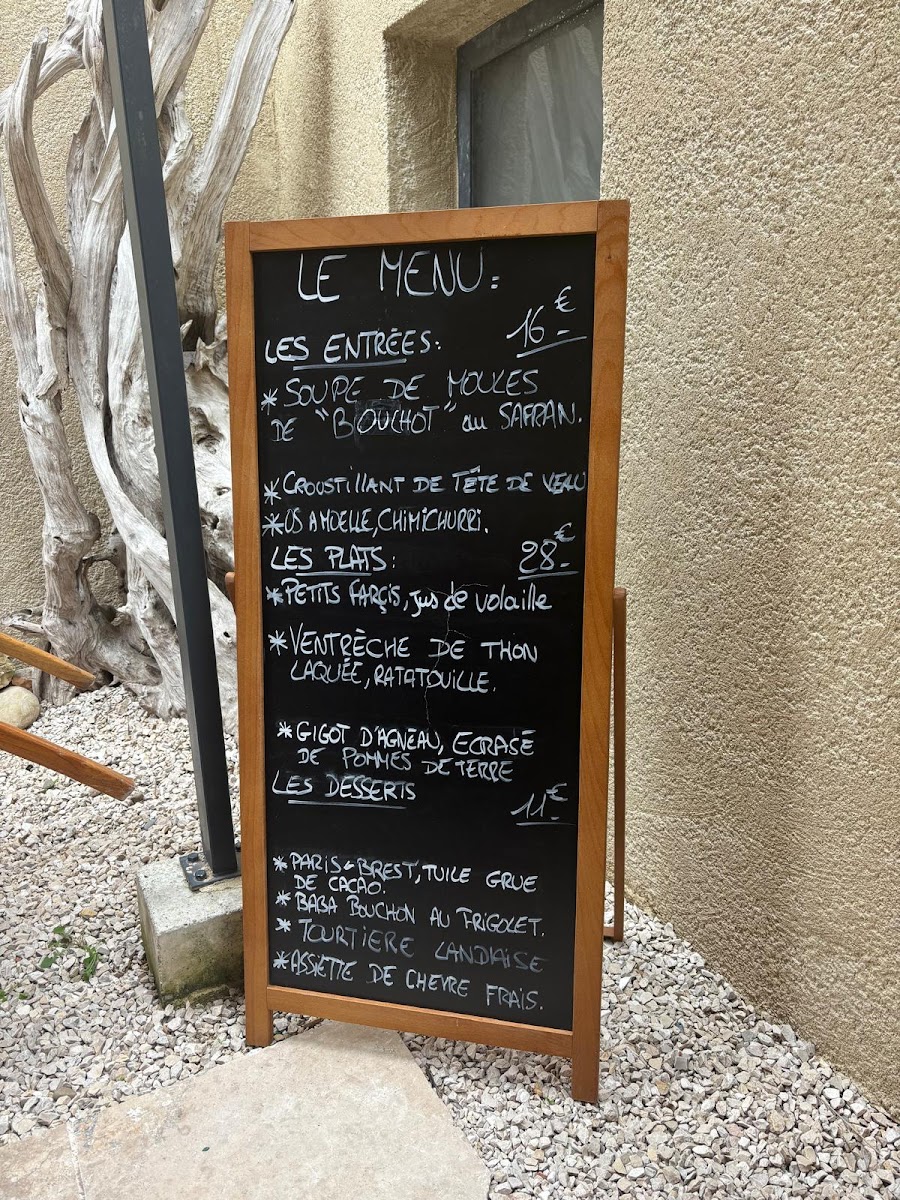 LE MENU:
LES ENTRÉES: 16€-
* SOUPE DE MOULES
DE "BOUCHOT" au SAFRAN.
* CROUSTILLANT DE TÊTE DE VEAU
* OS A MOELLE, CHIMICHURRI.
LES PLATS: 28€-
* PETITS FARÇIS, jus de volaille
* VENTRÈCHE DE THON
LAQUÉE, RATATOUILLE.
* GIGOT D'AGNEAU, ECRASÉ
DE POMMES DE TERRE
LES DESSERTS 11€-
* PARIS-BREST, TUILE GRUE
DE CACAO.
* BABA BOUCHON AU FRIGOLET.
* TOURTIERE LANDAISE
* ASSIETTE DE CHEVRE FRAIS.